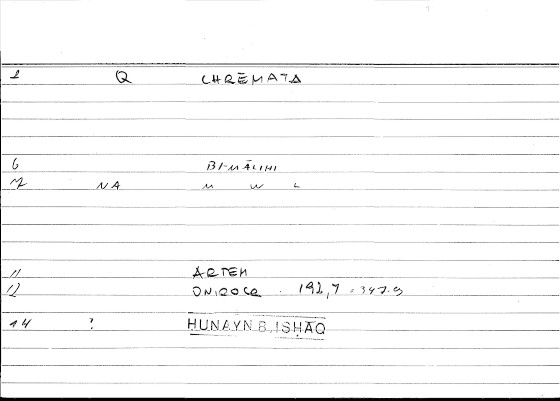 1 Q CHRĒMATA
6 BI-MĀLIHI
7 NA M W L
11 ARTEM
12 ONIROCR. 192,7 = 347.9
14 ? ḤUNAYN B. ISḤĀQ